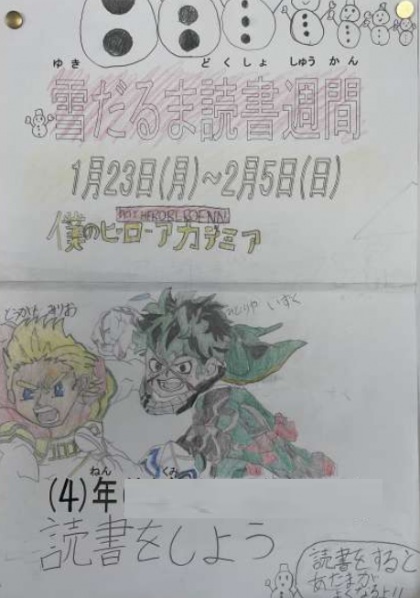 ゆき どくしょ しゅうかん
雪だるま読書週間
1月23日(月)~2月5日(日)
僕のヒーローアカデミア
みどりや いずく
ねん くみ
(4)年
読書をしよう
読書をすると
あたまが
よくなるよ!!